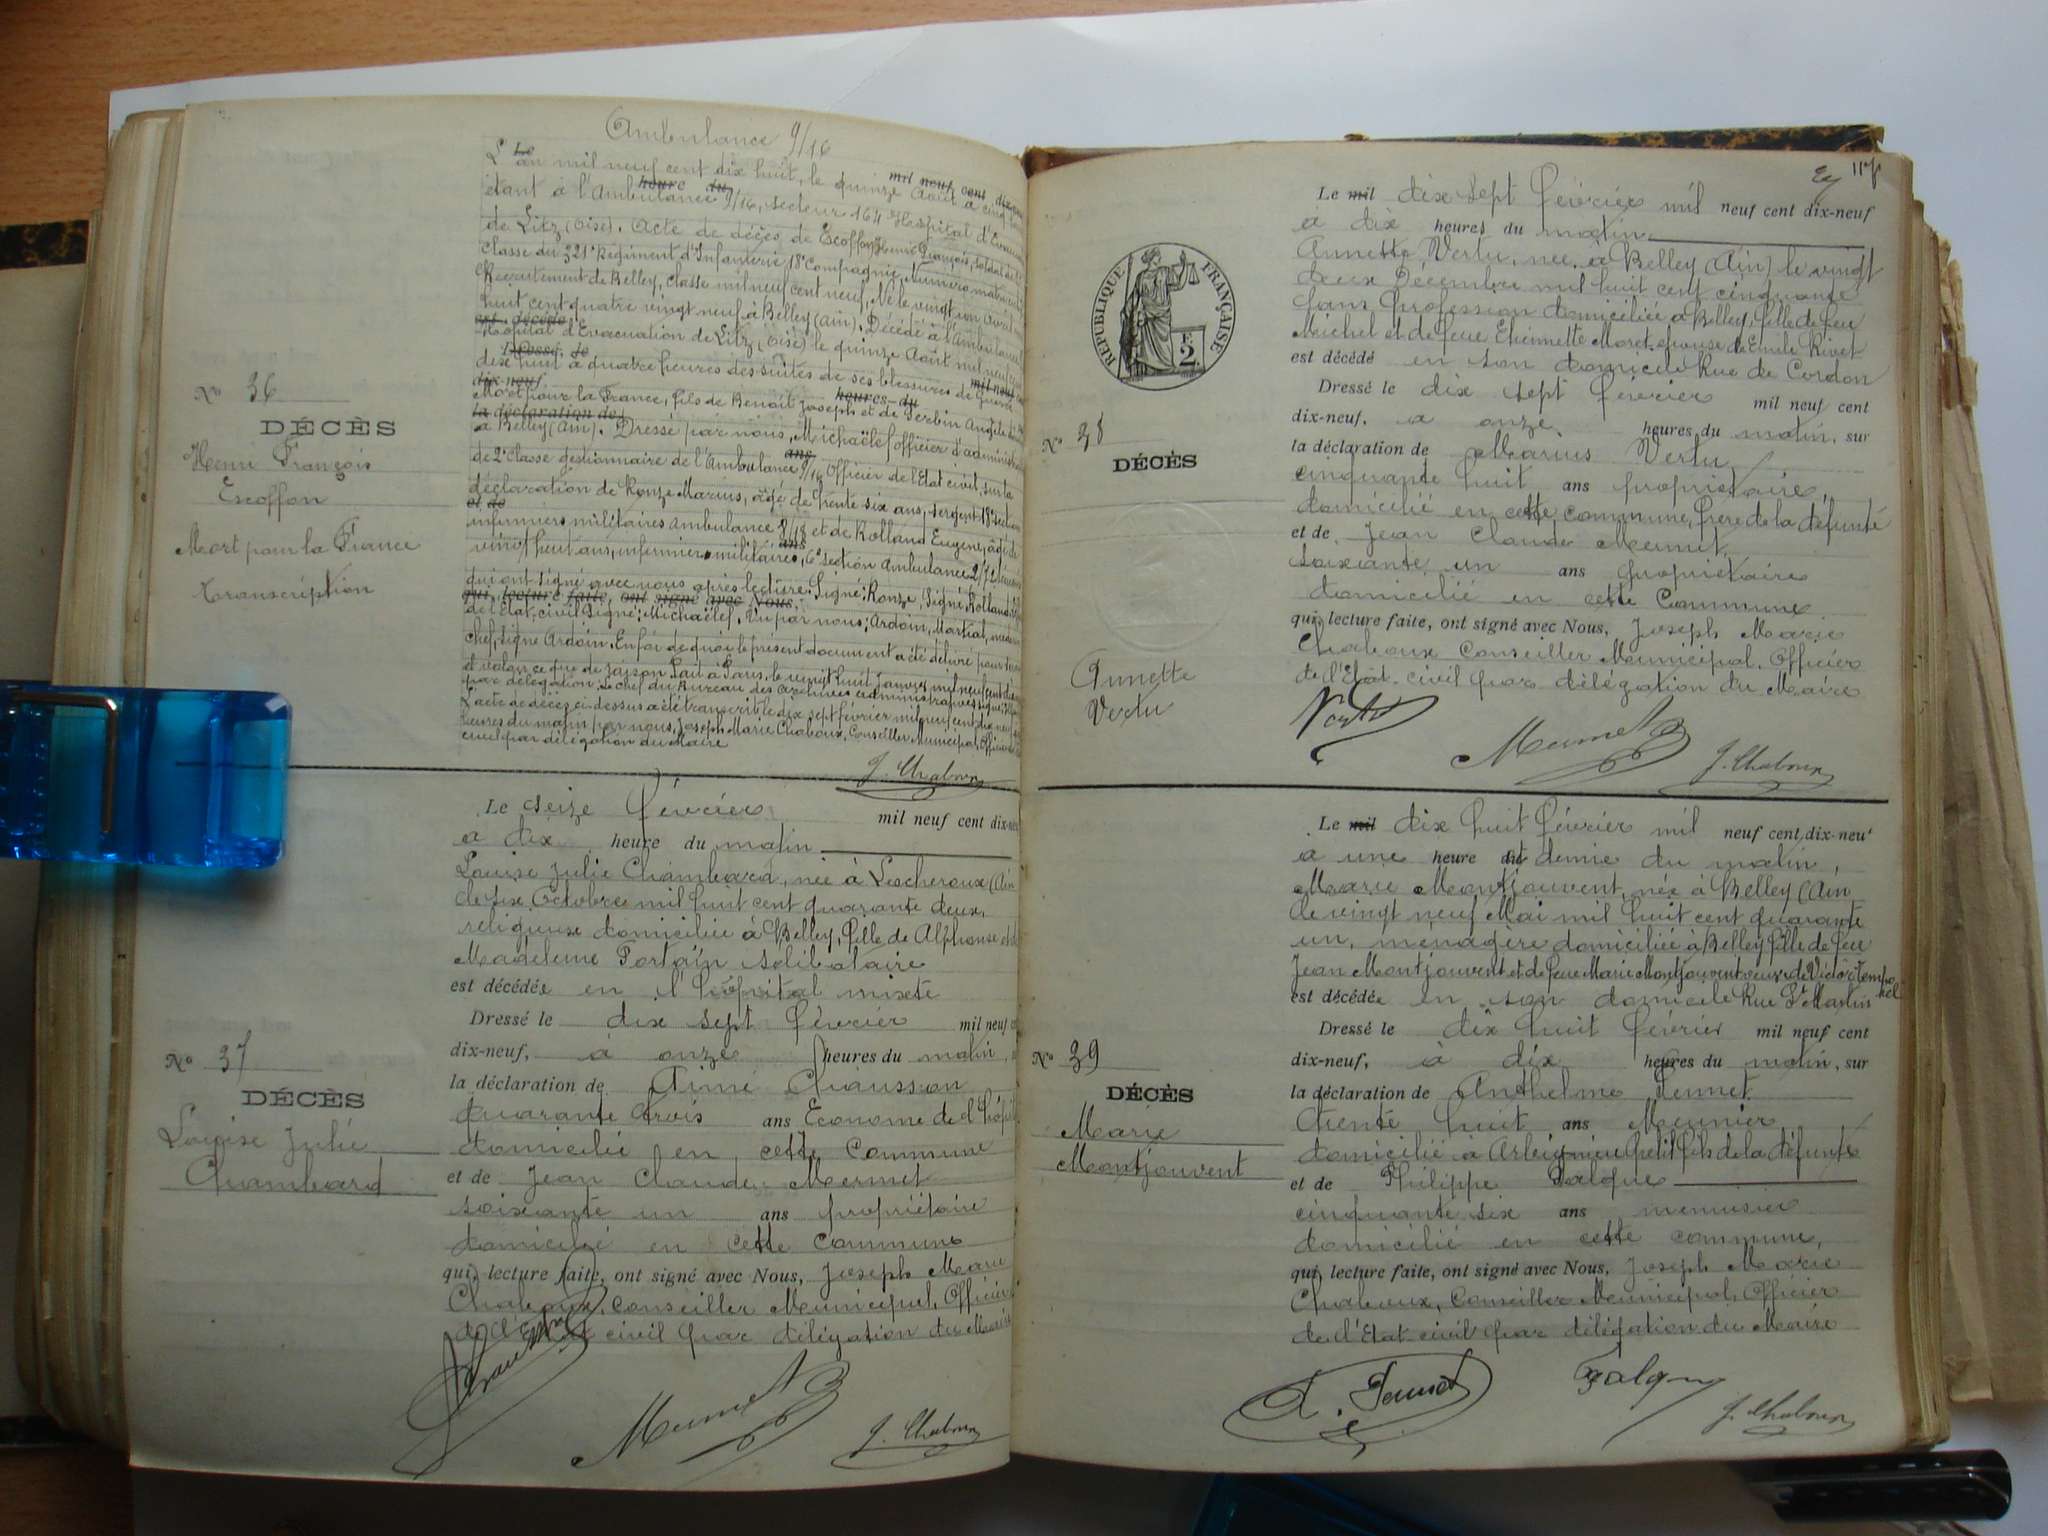 Ambulance 9/16
L'an mil neuf cent dix huit, le quinze Août à cinq
étant à l'Ambulance 9/16, secteur 164 Hospital d'Evacua
de Litz (Oise). Acte de décès de Escoffon Henri François, soldat de
Classe du 321e Régiment d'Infanterie 18e Compagnie, Numéro matricule
Recrutement de Belley, Classe mil neuf cent neuf, Né le vingt un Avril
huit cent quatre vingt neuf à Belley (Ain). Décédé à l'Ambulance
Hôpital d'Evacuation de Litz (Oise) le quinze Août mil neuf cent
dix huit à quatre heures des suites de ses blessures de Guerre
Mort pour la France, fils de Benoît Joseph et de Serbin Angèle
à Belley (Ain). Dressé par nous, Michaëlef officier d'administra
de 2e Classe gestionnaire de l'Ambulance 9/16 Officier de l'Etat civil, sur la
déclaration de Ronze Marius, âgé de trente six ans, sergent 18e section
infirmiers militaires ambulance 9/18 et de Rolland Eugène, âgé de
vingt huit ans, infirmiers militaires, 6e section Ambulance
qui ont signé avec nous après lecture. Signé: Ronze, Signé Rolland
de l'Etat civil Signé: Michaëlef. Vu par nous: Ardoin, Martial, médecin
chef, signé Ardoin. En foi de quoi le présent document a été délivré pour
et valoir ce que de raison Fait à Paris, le vingt huit Janvier mil neuf cent dix
par délégation: Le chef du Bureau des archives administratives
L'acte de décès ci-dessus a été transcrit le dix sept février mil neuf cent dix neuf
heures du matin par nous, Joseph Marie Chaboux, Conseiller Municipal, Officier
civil par délégation du Maire
J. Chaboux
No 36
DÉCÈS
Henri François
Escoffon
Mort pour la France
Transcription
Le seize février mil neuf cent dix-neuf
à dix heure du matin
Louise Julie Chambard, née à Lescheroux (Ain
le six Octobre mil huit cent quarante deux,
religieuse domiciliée à Belley, fille de Alphonse et de
Madeleine Portain célibataire
est décédée en l'hôpital mixte
Dressé le dix sept février mil neuf cent
dix-neuf, à onze heures du matin,
la déclaration de Aimé Chausson
quarante trois ans Econome de l'hôpi
domicilié en cette Commune
et de Jean Claude Mermet
soixante un ans propriétaire
domicilié en cette commune
qui, lecture faite, ont signé avec Nous, Joseph Marie
Chaboux, Conseiller Municipal, Officier
de l'Etat civil par délégation du Maire
Mermet
J. Chaboux
No 37
DÉCÈS
Louise Julie
Chambard
117
Le mil dix sept février mil neuf cent dix-neuf
à dix heures du matin
Annette Vertu, née à Belley (Ain) le vingt
deux Décembre mil huit cent cinquante
sans profession domiciliée à Belley, fille de feu
Michel et de feue Etiennette Moret épouse de Emile Rivet
est décédé en son domicile Rue de Cordon
Dressé le dix sept février mil neuf cent
dix-neuf, à onze heures du matin, sur
la déclaration de Marius Vertu
cinquante huit ans propriétaire,
domicilié en cette commune, frère de la défunte
et de Jean Claude Mermet
soixante un ans propriétaire
domicilié en cette Commune
qui, lecture faite, ont signé avec Nous, Joseph Marie
Chaboux Conseiller Municipal, Officier
de l'Etat civil par délégation du Maire
Vertu
Mermet
J. Chaboux
RÉPUBLIQUE FRANÇAISE
2 F.
No 38
DÉCÈS
Annette
Vertu
Le mil dix huit février mil neuf cent dix-neuf
à une heure et demie du matin,
Marie Montjouvent, née à Belley (Ain
le vingt neuf Mai mil huit cent quarante
un, ménagère domiciliée à Belley fille de feu
Jean Montjouvent et de feue Marie Montjouvent veuve de Victor
est décédée en son domicile Rue St Martin
Dressé le dix huit février mil neuf cent
dix-neuf, à dix heures du matin, sur
la déclaration de Anthelme Jennet
trente huit ans Meunier
domicilié à Arbignieu petit fils de la défunte
et de Philippe Falque
cinquante six ans menuisier
domicilié en cette commune,
qui, lecture faite, ont signé avec Nous, Joseph Marie
Chaboux, Conseiller Municipal, Officier
de l'Etat civil par délégation du Maire
A. Jennet
Falque
J. Chaboux
No 39
DÉCÈS
Marie
Montjouvent